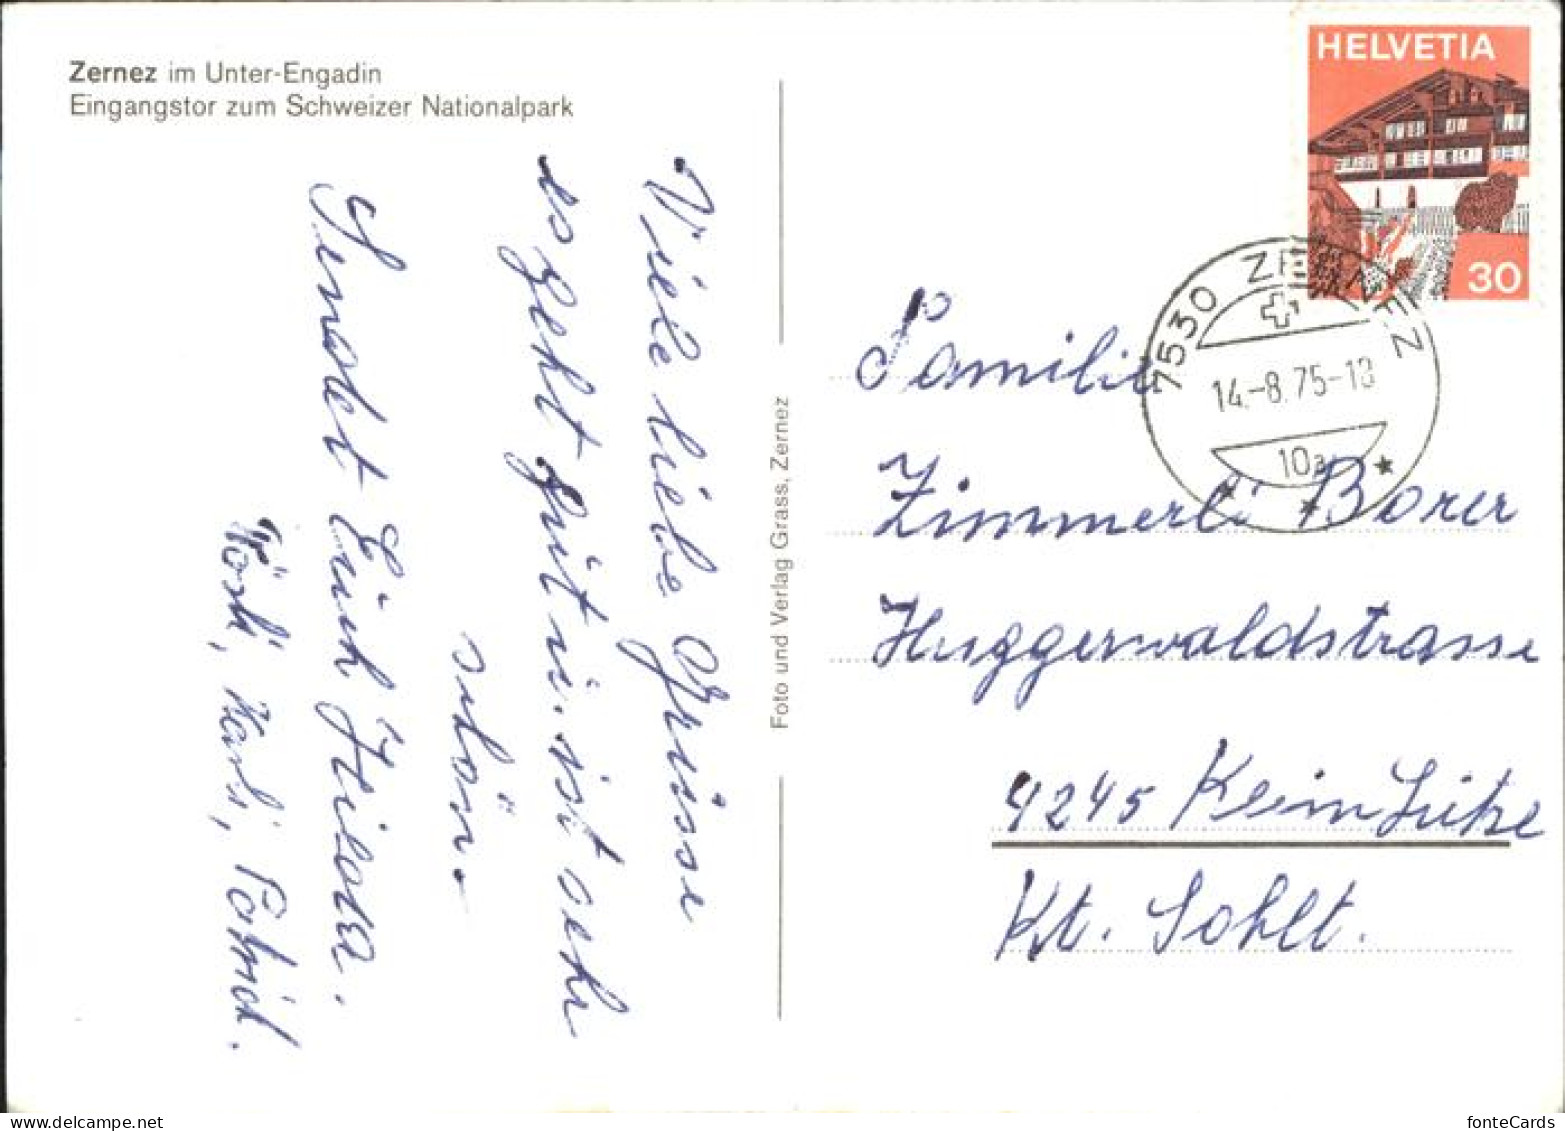 Zernez im Unter-Engadin
Eingangstor zum Schweizer Nationalpark
Viele liebe Grüsse
es geht gut u. ist sehr
schön.
Sendet Euch Heidi
Rösli, Karli, Patrick.
Foto und Verlag Grass, Zernez
HELVETIA
30
7530 ZERNEZ
14.-8.75-18
10a
Familie
Zimmerli Borer
Huggerwaldstrasse
4245 Kleinlützel
Kt. Soloth.
fonteCards